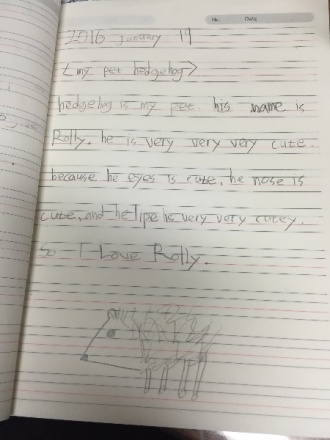 No. Date
2016 january 19
<my pet hedgehog>
hedgehog is my pet. his name is
Rolly. he is very very very cute.
because he eyes is cute, he nose is
cute, and he lipe is very very cutey.
so I Love Rolly.